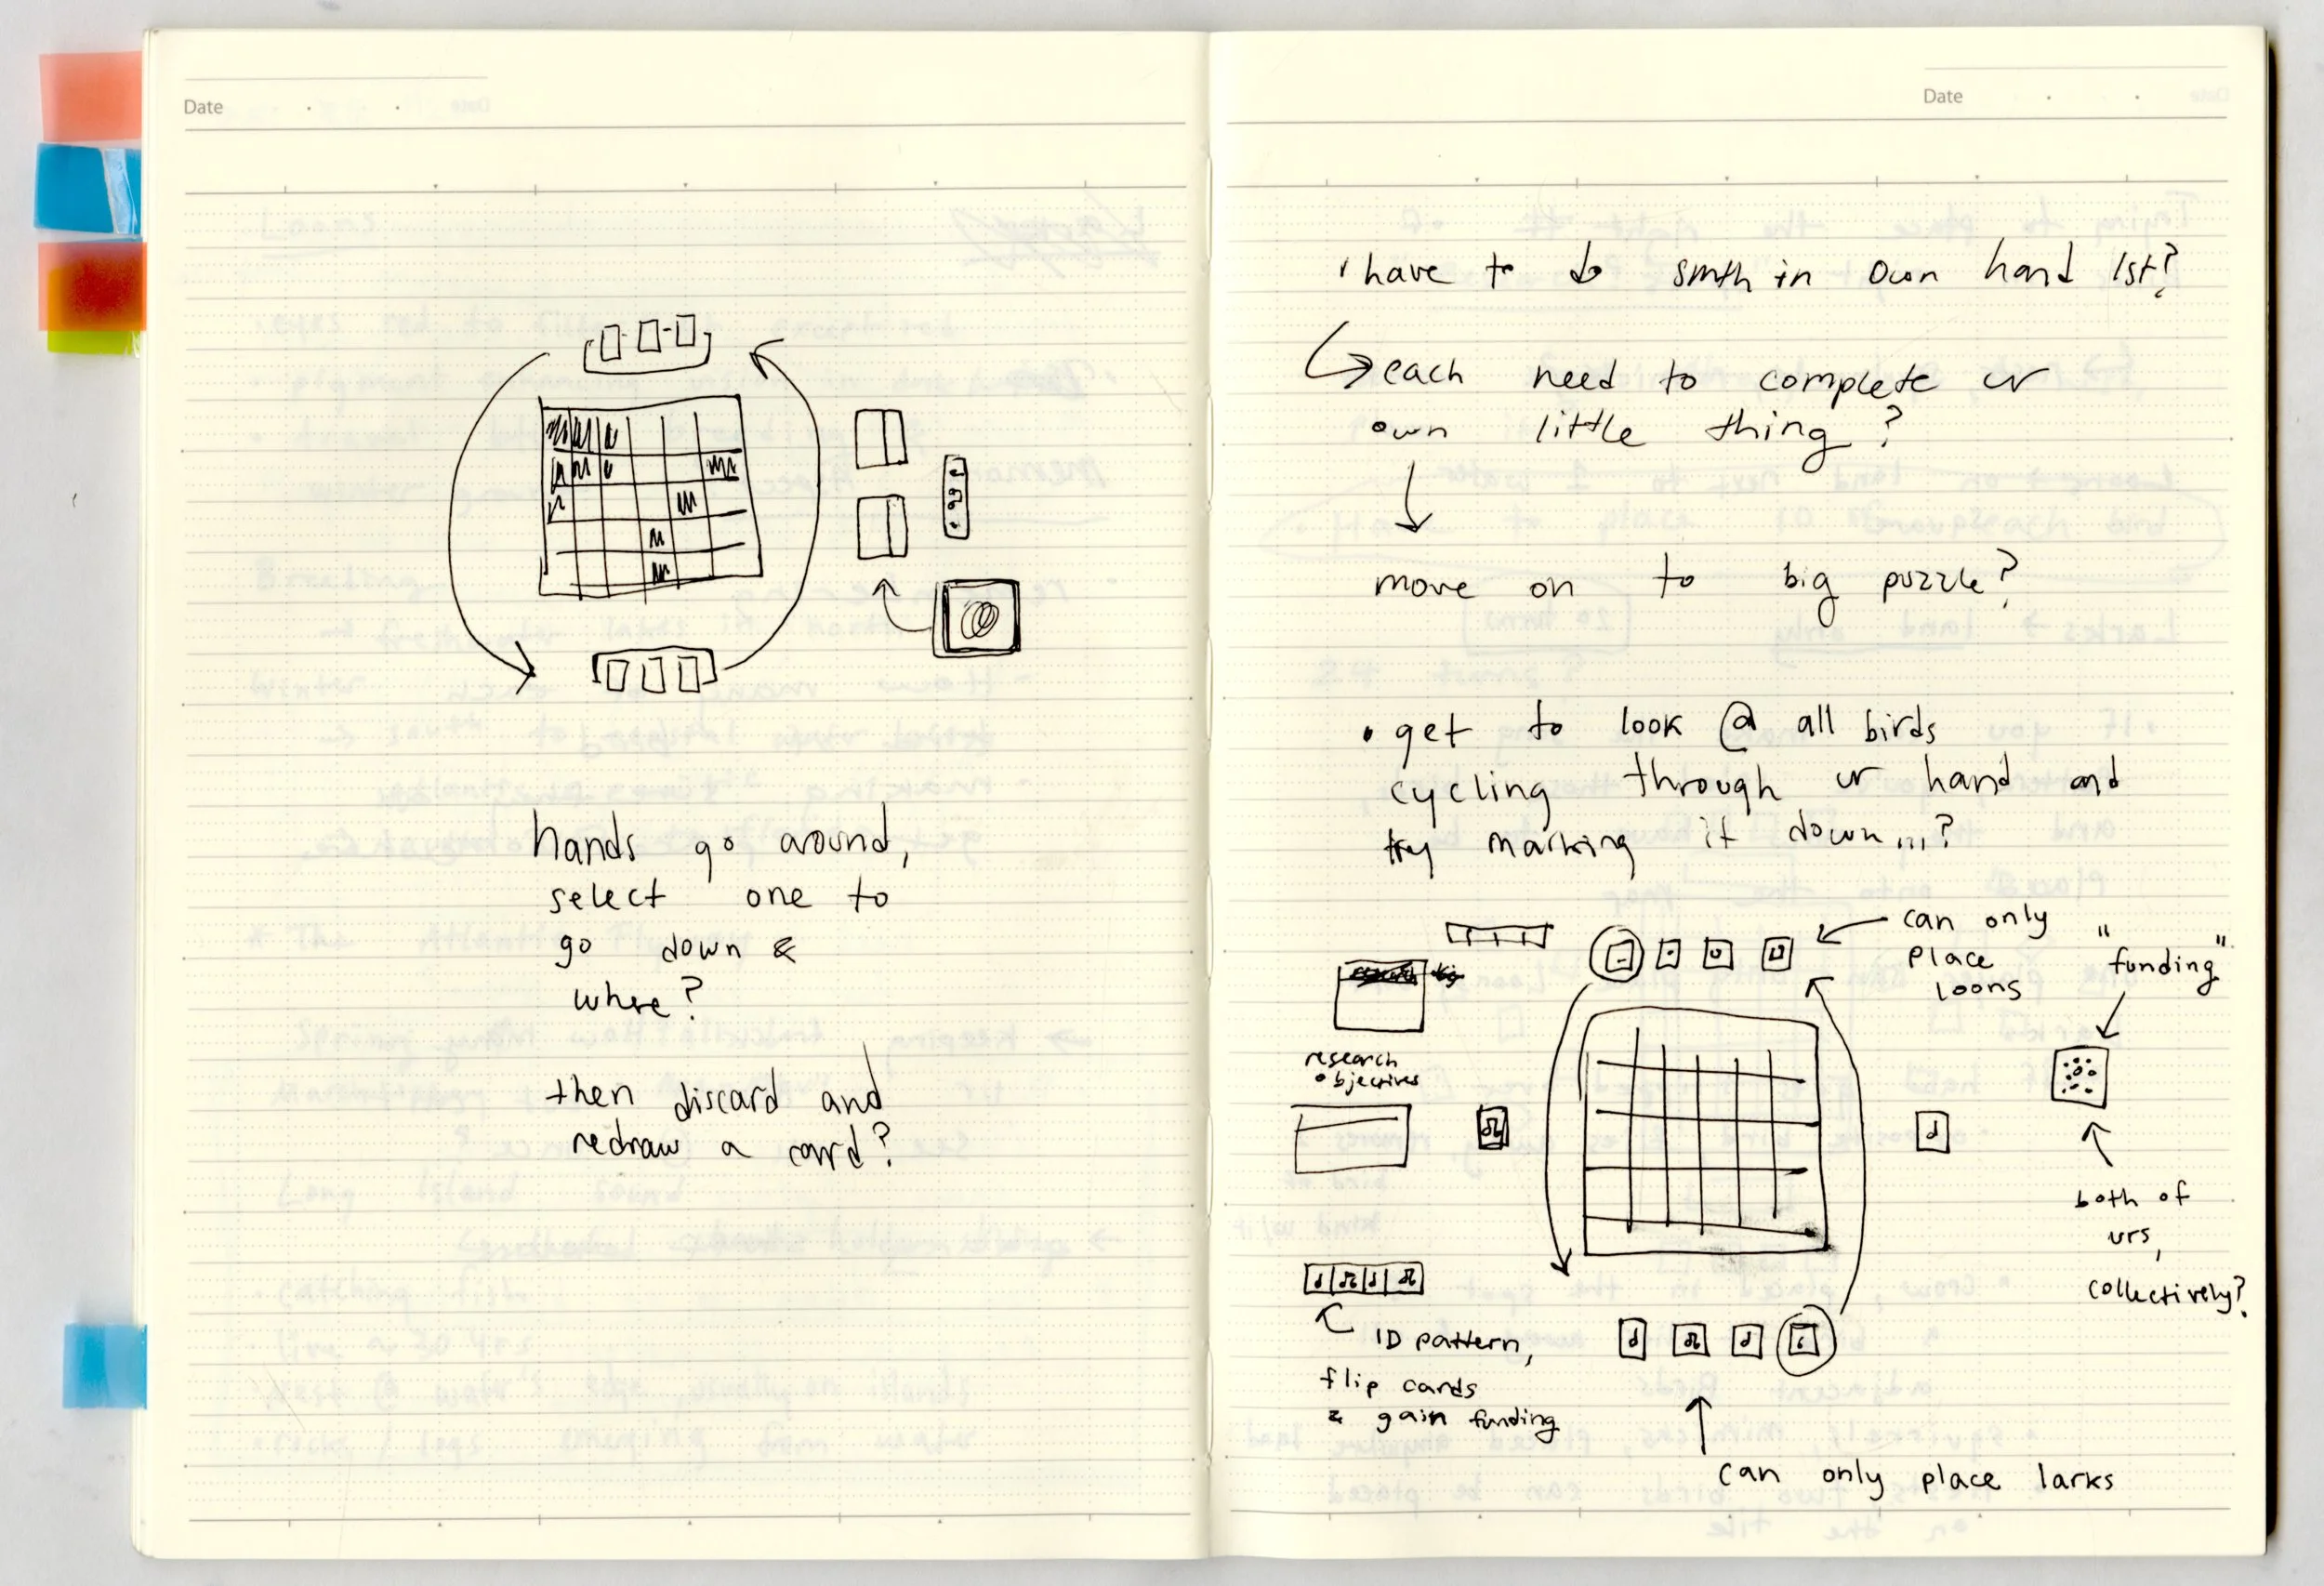 Date
hands go around,
select one to
go down &
where?
then discard and
redraw a card?
Date
have to do smth in own hand 1st?
each need to complete ur
own little thing?
move on to big puzzle?
• get to look @ all birds
cycling through ur hand and
try marking it down...?
can only
place
loons
"funding"
research
objectives
both of
urs,
collectively?
ID pattern,
flip cards
& gain funding
can only place larks